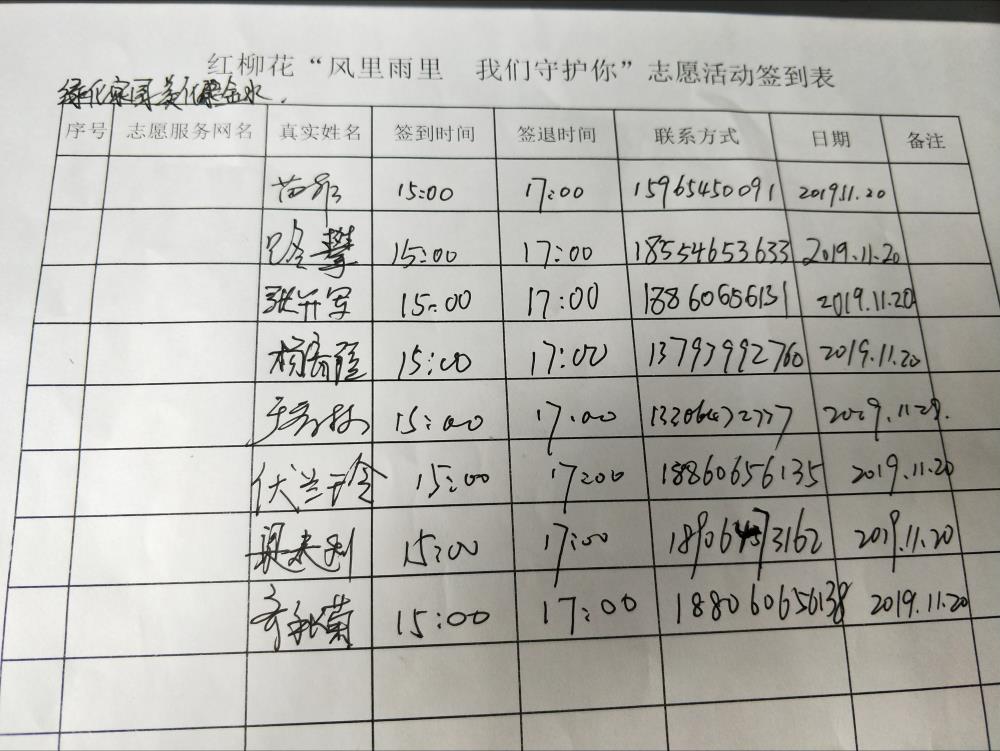 红柳花“风里雨里 我们守护你”志愿活动签到表
绿化家园美化碧金水.
序号 志愿服务网名 真实姓名 签到时间 签退时间 联系方式 日期 备注
15:00 17:00 15965450091 2019.11.20
路攀 15:00 17:00 18554653633 2019.11.20
张升军 15:00 17:00 18860656131 2019.11.20
15:00 17:00 13793992760 2019.11.20
15:00 17:00 2019.11.20.
伏兰玲 15:00 17:00 18860656135 2019.11.20
梁来利 15:00 17:00 2019.11.20
15:00 17:00 2019.11.20